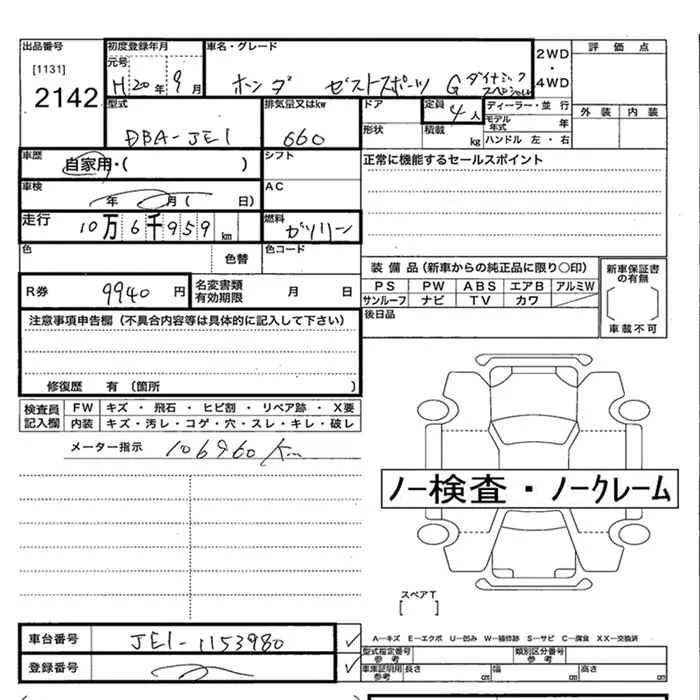 出品番号 初度登録年月 車名・グレード
[1131] 元号
2142 H20年 9月 ホンダ ゼストスポーツ G ダイナミック スペシャル 2WD・4WD 評価点
型式 排気量又はkw ドア 定員 4人 ディーラー・並行 外装 内装
DBA-JE1 660 形状 積載 kg モデル年式 年
ハンドル 左・右
車歴 自家用・( ) シフト 正常に機能するセールスポイント
車検 年 月( 日) AC
走行 10万6千959km 燃料 ガソリン
色 色替 色コード
R券 9940円 名変書類有効期限 月 日
装備品(新車からの純正品に限り〇印) 新車保証書の有無
PS PW ABS エアB アルミW
サンルーフ ナビ TV カワ
後日品 車載不可
注意事項申告欄(不具合内容等は具体的に記入して下さい)
修復歴 有(箇所 )
検査員記入欄 FW キズ・飛石・ヒビ割・リペア跡・X要
内装 キズ・汚レ・コゲ・穴・スレ・キレ・破レ
メーター指示 106960Km
ノー検査・ノークレーム
スペアT
[ ]
車台番号 JE1-1153980
A—キズ E—エクボ U—凹み W—補修跡 S—サビ C—腐食 XX—交換済
型式指定番号 参考 類別区分番号 参考
登録番号 車庫証明用 参考 長さ cm 幅 cm 高さ cm